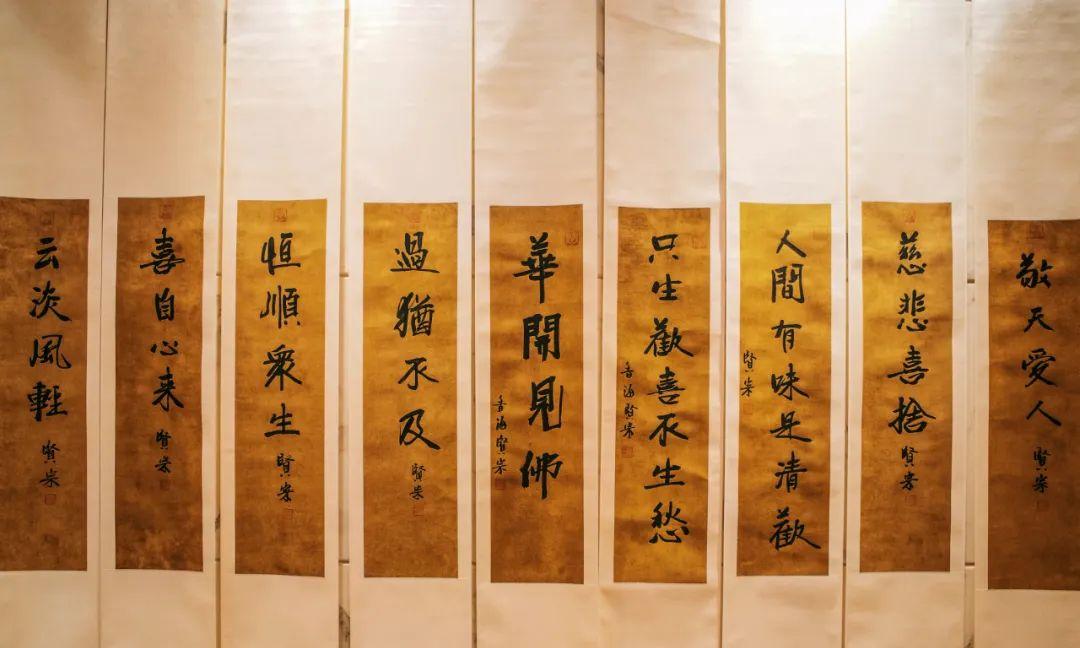 敬天愛人
賢崇
慈悲喜捨
賢崇
人間有味是清歡
賢崇
只生歡喜不生愁
香海賢崇
華開見佛
香海賢崇
過猶不及
賢崇
恒順衆生
賢崇
喜自心来
賢崇
云淡風輕
賢崇